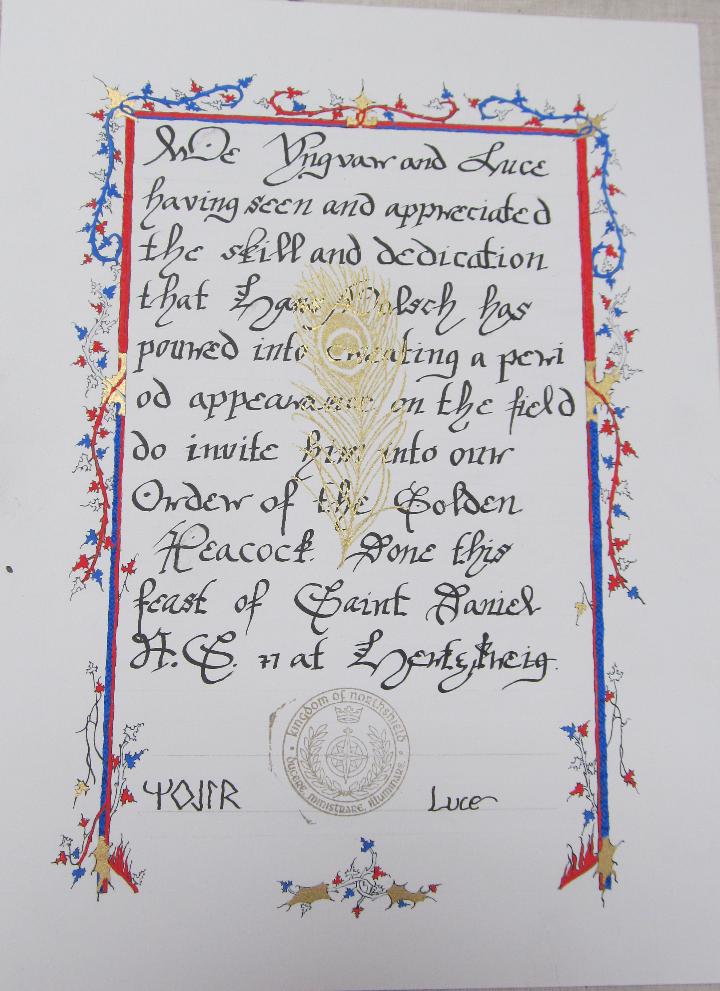 We Yngvarr and Luce
having seen and appreciated
the skill and dedication
that Hans Wolsch has
poured into creating a peri
od appearance on the field
do invite him into our
Order of the Golden
Peacock. Done this
feast of Saint Daniel
A.S. 51 at
kingdom of northshield
ducere ministrare illuminare
Luce